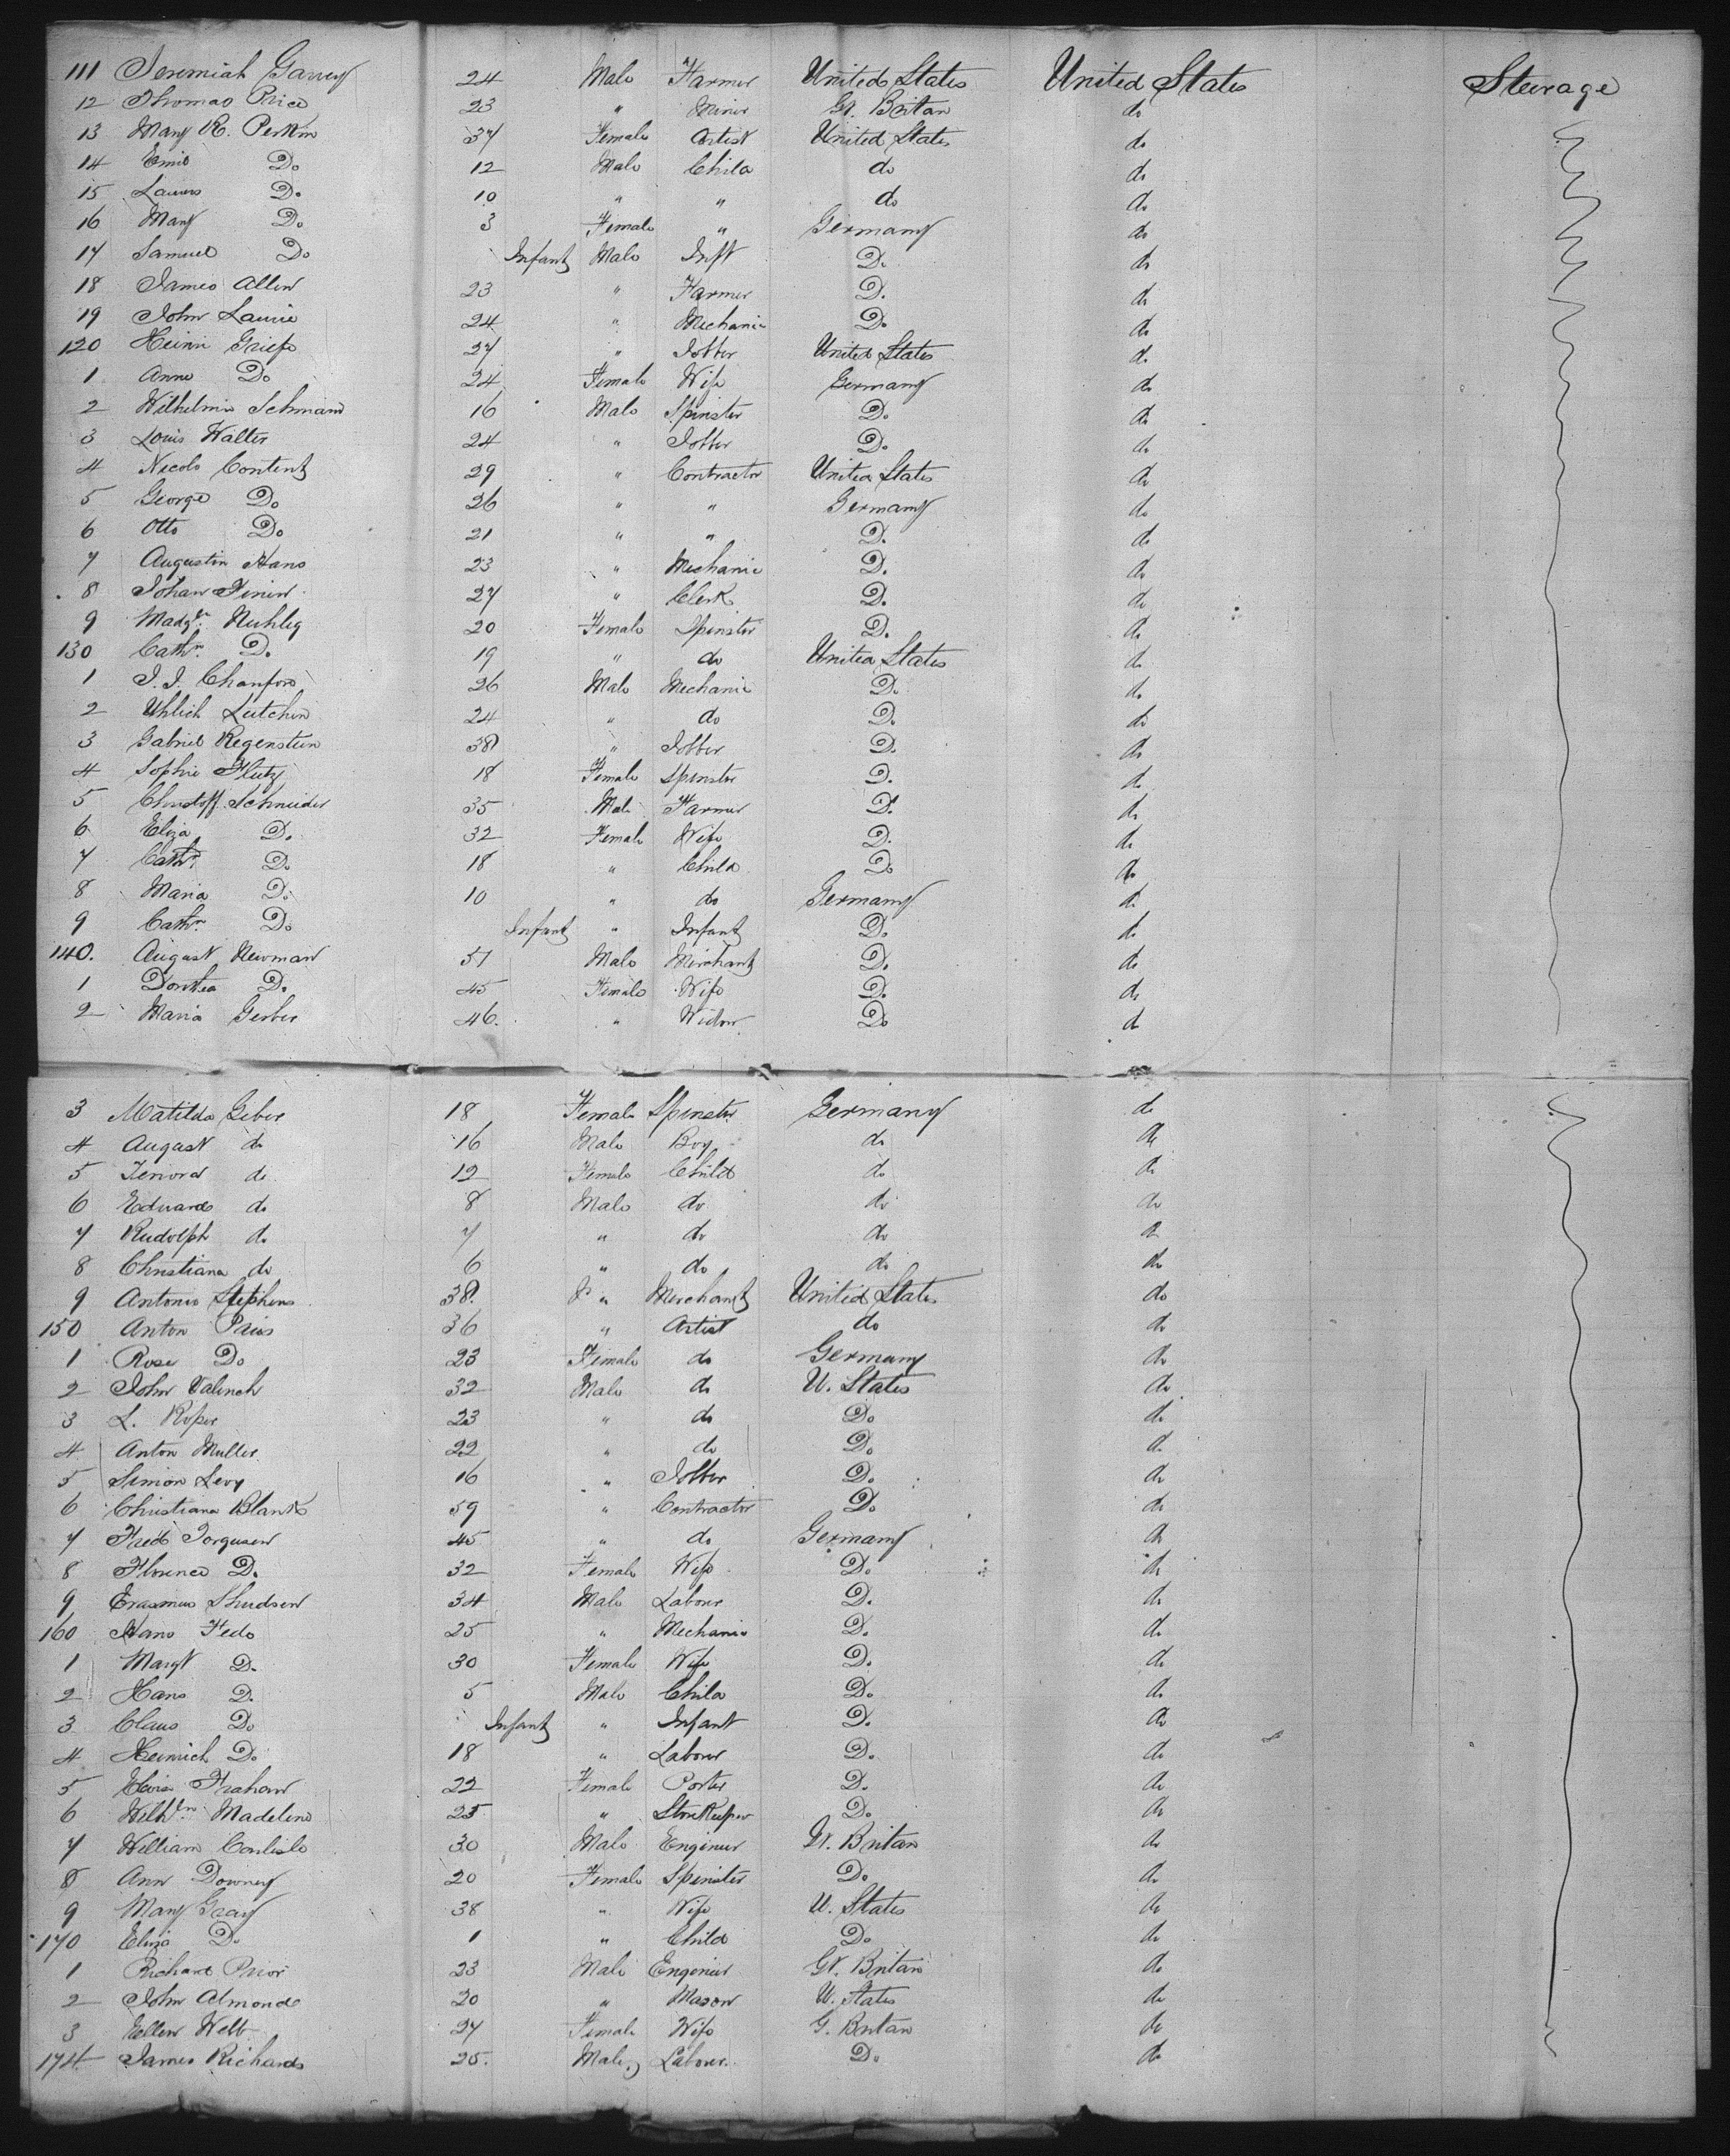 111 Jeremiah Garvey 24 Male Farmer United States United States Steerage
12 Thomas Price 23 " Miner Gt. Britan do
13 Mary R. Perkin 37 Female Artist United States do
14 Emie Do 12 Male Child do do
15 Do 10 " " do do
16 Mary Do 3 Female " Germany do
17 Samuel Do Infant Male Inft Do do
18 James Allen 23 " Farmer Do. do
19 John Laurie 24 " Mechanic Do do
120 Heinri Griefe 27 " Jobber United States do
1 Anne Do 24 Female Wife Germany do
2 Wilhelmin Schmand 16 Male Spinster Do. do
3 Louis Walter 24 " Jobber Do. do
4 Nicolo Content 29 " Contractor United States do
5 George Do 26 " " Germany do
6 Otto Do 21 " " Do. do
7 Augustin Hans 23 " Mechanic Do. do
8 Johan 27 " Clerk Do. do
9 Madgln. Nuhlig 20 Female Spinster Do. do
130 Cathn. Do. 19 " do United States do
1 J. J. Chanford 26 Male Mechanic Do. do
2 Uhlich Lutchen 24 " do Do. do
3 Gabriel Regenstein 38 " Jobber Do. do
4 Sophie Flutz 18 Female Spinster Do. do
5 Christoff. Schneider 35 Male Farmer Do. do
6 Eliza Do. 32 Female Wife Do. do
7 Cathn. Do 18 " Child Do do
8 Maria Do. 10 " do Germany do
9 Cathn. Do Infant " Infant Do. do
140. August Newman 51 Male Merchant Do. do
1 Dorothea Do. 45 Female Wife Do. do
2 Maria Gerber 46. " Widow Do do
3 Matilda Geber 18 Female Spinster Germany do
4 August do 16 Male Boy do do
5 do 12 Female Child do do
6 Eduard do 8 Male do do do
7 Rudolph do 7 " do do do
8 Christiana do 6 " do do do
9 Antonio Stephens 38. " Merchant United States do
150 Anton Pries 36 " Artist do do
1 Rose Do 23 Female do Germany do
2 John Valinch 32 Male do U. States do
3 L. Roper 23 " do Do do
4 Anton Muller 22 " do Do do
5 Simon Levy 16 " Jobber Do. do
6 Christiana Blank 59 " Contractor Do. do
7 Fred Jorgusen 45 " do Germany do
8 Florence Do. 32 Female Wife Do. do
9 Erasmus Shudsen 34 Male Laborer Do. do
160 Hans Fedo 25 " Mechanic Do. do
1 Margt Do. 30 Female Wife Do. do
2 Hans Do. 5 Male Child Do. do
3 Claus Do Infant " Infant Do. do
4 Heinrich Do. 18 " Laborer Do. do
5 Frahaw 22 Female Porter Do. do
6 Wilhlm Madeline 25 " StoreKeeper Do. do
7 William Carlisle 30 Male Engineer Gt. Britan do
8 Ann Downey 20 Female Spinster Do do
9 Mary Gray 38 " Wife U. States do
170 Eliza Do 1 " Child Do do
1 Richard Prior 23 Male Engenier Gt. Britan do
2 John Almond 20 " Mason U. States do
3 Ellen Webb 27 Female Wife G. Britan do
174 James Richards 25. Male Laborer. Do. do